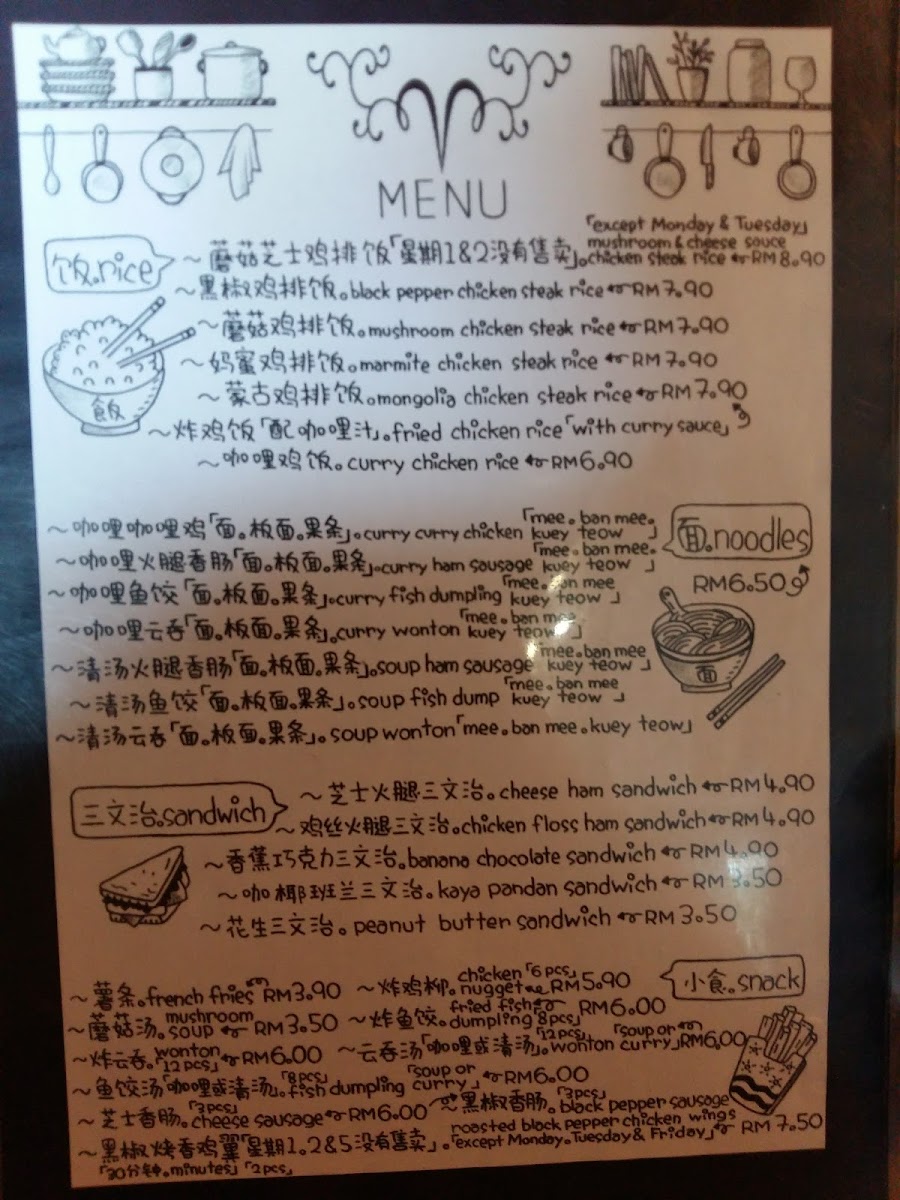 MENU
饭。rice
「except Monday & Tuesday」
~ 蘑菇芝士鸡排饭「星期1&2没有售卖」。mushroom & cheese sauce chicken steak rice RM 8.90
~ 黑椒鸡排饭。black pepper chicken steak rice RM 7.90
~ 蘑菇鸡排饭。mushroom chicken steak rice RM 7.90
~ 妈蜜鸡排饭。marmite chicken steak rice RM 7.90
~ 蒙古鸡排饭。mongolia chicken steak rice RM 7.90
~ 炸鸡饭「配咖哩汁」。fried chicken rice「with curry sauce」
~ 咖哩鸡饭。curry chicken rice RM 6.90
飯
面。noodles
RM 6.50
~ 咖哩咖哩鸡「面。板面。果条」。curry curry chicken「mee。ban mee。kuey teow」
~ 咖哩火腿香肠「面。板面。果条」。curry ham sausage「mee。ban mee。kuey teow」
~ 咖哩鱼饺「面。板面。果条」。curry fish dumpling「mee。ban mee kuey teow」
~ 咖哩云吞「面。板面。果条」。curry wonton「mee。ban mee kuey teow」
~ 清汤火腿香肠「面。板面。果条」。soup ham sausage「mee。ban mee kuey teow」
~ 清汤鱼饺「面。板面。果条」。soup fish dump「mee。ban mee kuey teow」
~ 清汤云吞「面。板面。果条」。soup wonton「mee。ban mee。kuey teow」
面
三文治。sandwich
~ 芝士火腿三文治。cheese ham sandwich RM 4.90
~ 鸡丝火腿三文治。chicken floss ham sandwich RM 4.90
~ 香蕉巧克力三文治。banana chocolate sandwich RM 4.90
~ 咖椰班兰三文治。kaya pandan sandwich RM 3.50
~ 花生三文治。peanut butter sandwich RM 3.50
小食。snack
~ 薯条。french fries RM 3.90
~ 炸鸡柳。chicken nugget「6 pcs」RM 5.90
~ 蘑菇汤。mushroom soup RM 3.50
~ 炸鱼饺。fried fish dumpling「8 pcs」RM 6.00
~ 炸云吞。wonton「12 pcs」RM 6.00
~ 云吞汤「咖哩或清汤」。「12 pcs」wonton「soup or curry」RM 6.00
~ 鱼饺汤「咖哩或清汤」。「8 pcs」fish dumpling「soup or curry」RM 6.00
~ 芝士香肠。「3 pcs」cheese sausage RM 6.00
~ 黑椒香肠。「3 pcs」black pepper sausage
~ 黑椒烤香鸡翼「星期1.2&5没有售卖」。roasted black pepper chicken wings「except Monday。Tuesday & Friday」RM 7.50
「20分钟。minutes」「2 pcs」